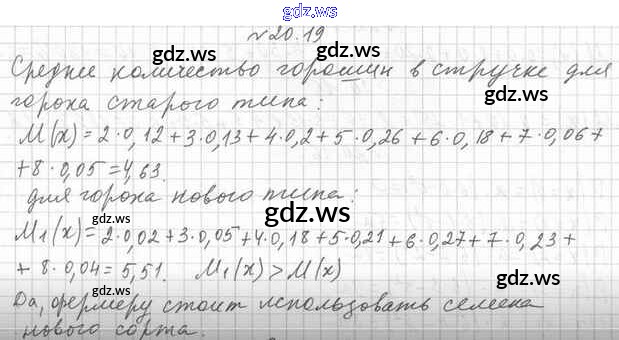 gdz.ws
№20.19
gdz.ws
Среднее количество горошин в стручке для
гороха старого типа:
M(x)=2·0,12+3·0,13+4·0,2+5·0,26+6·0,18+7·0,06+
+8·0,05=4,63.
gdz.ws
для гороха нового типа:
gdz.ws
M₁(x)=2·0,02+3·0,05+4·0,18+5·0,21+6·0,27+7·0,23+
+8·0,04=5,51. M₁(x)>M(x)
gdz.ws
gdz.ws
Да, фермеру стоит использовать семена
нового сорта.
gdz.ws